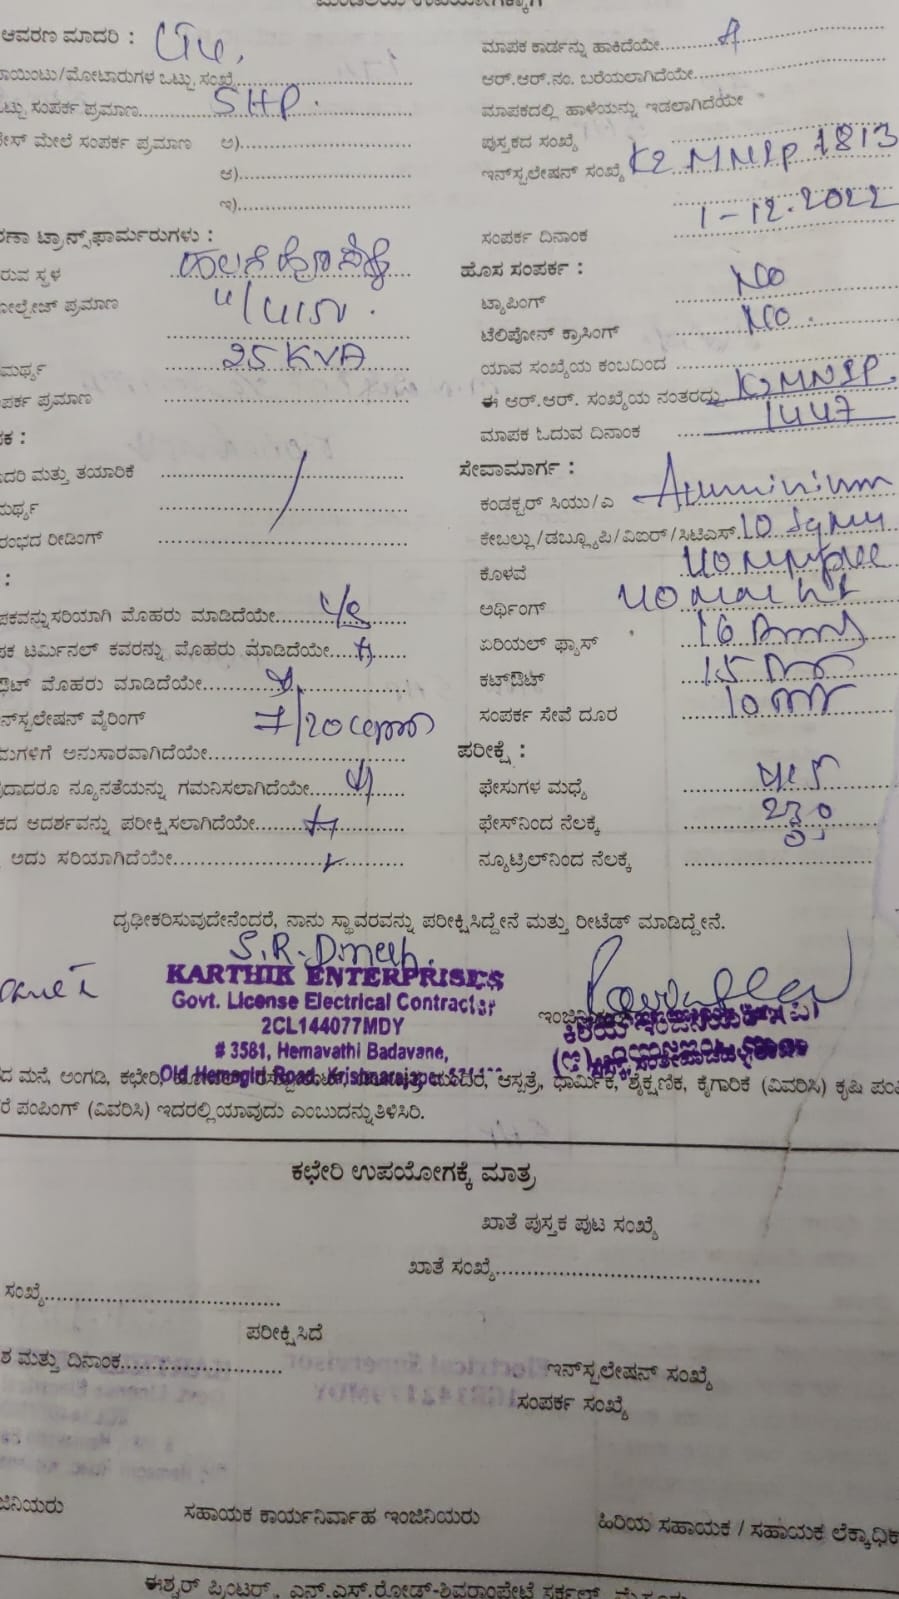 ಆವರಣ ಮಾದರಿ :
ಮಾಪಕ ಕಾರ್ಡನ್ನು ಹಾಕಿದೆಯೇ
ಯಿಂಟು/ಮೋಟಾರುಗಳ ಒಟ್ಟು ಸಂಖ್ಯೆ
ಆರ್.ಆರ್.ನಂ. ಬರೆಯಲಾಗಿದೆಯೇ
ಟ್ಟು ಸಂಪರ್ಕ ಪ್ರಮಾಣ 5HP.
ಮಾಪಕದಲ್ಲಿ ಹಾಳೆಯನ್ನು ಇಡಲಾಗಿದೆಯೇ
ೇಸ್ ಮೇಲೆ ಸಂಪರ್ಕ ಪ್ರಮಾಣ ಅ)
ಪುಸ್ತಕದ ಸಂಖ್ಯೆ
ಆ)
ಇನ್‌ಸ್ಟಲೇಷನ್ ಸಂಖ್ಯೆ K2 MNSP 1813
ಇ)
ಸಂಪರ್ಕ ದಿನಾಂಕ 1-12.2022
ರಣಾ ಟ್ರಾನ್ಸ್‌ಫಾರ್ಮರುಗಳು :
ಹೊಸ ಸಂಪರ್ಕ :
ರುವ ಸ್ಥಳ
ಟ್ಯಾಪಿಂಗ್ NO
ೋಲ್ಟೇಜ್ ಪ್ರಮಾಣ
ಟೆಲಿಫೋನ್ ಕ್ರಾಸಿಂಗ್ NO.
ಮರ್ಥ್ಯ 25 KVA
ಯಾವ ಸಂಖ್ಯೆಯ ಕಂಬದಿಂದ
ಪರ್ಕ ಪ್ರಮಾಣ
ಈ ಆರ್.ಆರ್. ಸಂಖ್ಯೆಯ ನಂತರದ್ದು K2MNSP
ಕ :
ಮಾಪಕ ಓದುವ ದಿನಾಂಕ 1447
ದರಿ ಮತ್ತು ತಯಾರಿಕೆ
ಸೇವಾಮಾರ್ಗ :
ಮರ್ಥ್ಯ
ಕಂಡಕ್ಟರ್ ಸಿಯು/ಎ Aluminium
ರಂಭದ ರೀಡಿಂಗ್
ಕೇಬಲ್ಲು/ಡಬ್ಲ್ಯೂಪಿ/ವಿಐಆರ್/ಸಿಟಿಎಸ್. 10 Sqmm
ಕೊಳವೆ
ಪಕವನ್ನು ಸರಿಯಾಗಿ ಮೊಹರು ಮಾಡಿದೆಯೇ
ಅರ್ಥಿಂಗ್
ಪಕ ಟರ್ಮಿನಲ್ ಕವರನ್ನು ಮೊಹರು ಮಾಡಿದೆಯೇ
ಏರಿಯಲ್ ಫ್ಯೂಸ್
ಔಟ್ ಮೊಹರು ಮಾಡಿದೆಯೇ
ಕಟ್‌ಔಟ್
ನ್‌ಸ್ಟಲೇಷನ್ ವೈರಿಂಗ್
ಸಂಪರ್ಕ ಸೇವೆ ದೂರ
ಮಗಳಿಗೆ ಅನುಸಾರವಾಗಿದೆಯೇ
ಪರೀಕ್ಷೆ :
ದಾದರೂ ನ್ಯೂನತೆಯನ್ನು ಗಮನಿಸಲಾಗಿದೆಯೇ
ಫೇಸುಗಳ ಮಧ್ಯೆ
ಕದ ಆದರ್ಶವನ್ನು ಪರೀಕ್ಷಿಸಲಾಗಿದೆಯೇ
ಫೇಸ್‌ನಿಂದ ನೆಲಕ್ಕೆ 230
ಅದು ಸರಿಯಾಗಿದೆಯೇ
ನ್ಯೂಟ್ರಲ್‌ನಿಂದ ನೆಲಕ್ಕೆ
ದೃಢೀಕರಿಸುವುದೇನೆಂದರೆ, ನಾನು ಸ್ಥಾವರವನ್ನು ಪರೀಕ್ಷಿಸಿದ್ದೇನೆ ಮತ್ತು ರೀಟೆಡ್ ಮಾಡಿದ್ದೇನೆ.
KARTHIK ENTERPRISES
Govt. License Electrical Contractor
2CL144077MDY
# 3581, Hemavathi Badavane,
Old Hemagiri Road, Krishnarajapet
ದ ಮನೆ, ಅಂಗಡಿ, ಕಛೇರಿ, ಆಸ್ಪತ್ರೆ, ಧಾರ್ಮಿಕ, ಶೈಕ್ಷಣಿಕ, ಕೈಗಾರಿಕೆ (ವಿವರಿಸಿ) ಕೃಷಿ ಪಂಪಿ
ರೆ ಪಂಪಿಂಗ್ (ವಿವರಿಸಿ) ಇದರಲ್ಲಿ ಯಾವುದು ಎಂಬುದನ್ನು ತಿಳಿಸಿರಿ.
ಕಛೇರಿ ಉಪಯೋಗಕ್ಕೆ ಮಾತ್ರ
ಖಾತೆ ಪುಸ್ತಕ ಪುಟ ಸಂಖ್ಯೆ
ಖಾತೆ ಸಂಖ್ಯೆ
ಸಂಖ್ಯೆ
ಪರೀಕ್ಷಿಸಿದೆ
ಶ ಮತ್ತು ದಿನಾಂಕ
ಇನ್‌ಸ್ಟಲೇಷನ್ ಸಂಖ್ಯೆ
ಸಂಪರ್ಕ ಸಂಖ್ಯೆ
ಜಿನಿಯರು ಸಹಾಯಕ ಕಾರ್ಯನಿರ್ವಾಹ ಇಂಜಿನಿಯರು ಹಿರಿಯ ಸಹಾಯಕ / ಸಹಾಯಕ ಲೆಕ್ಕಾಧಿಕ
ಈಶ್ವರ್ ಪ್ರಿಂಟರ್, ಎನ್.ಎಸ್.ರೋಡ್-ಶಿವರಾಂಪೇಟೆ ಸರ್ಕಲ್,